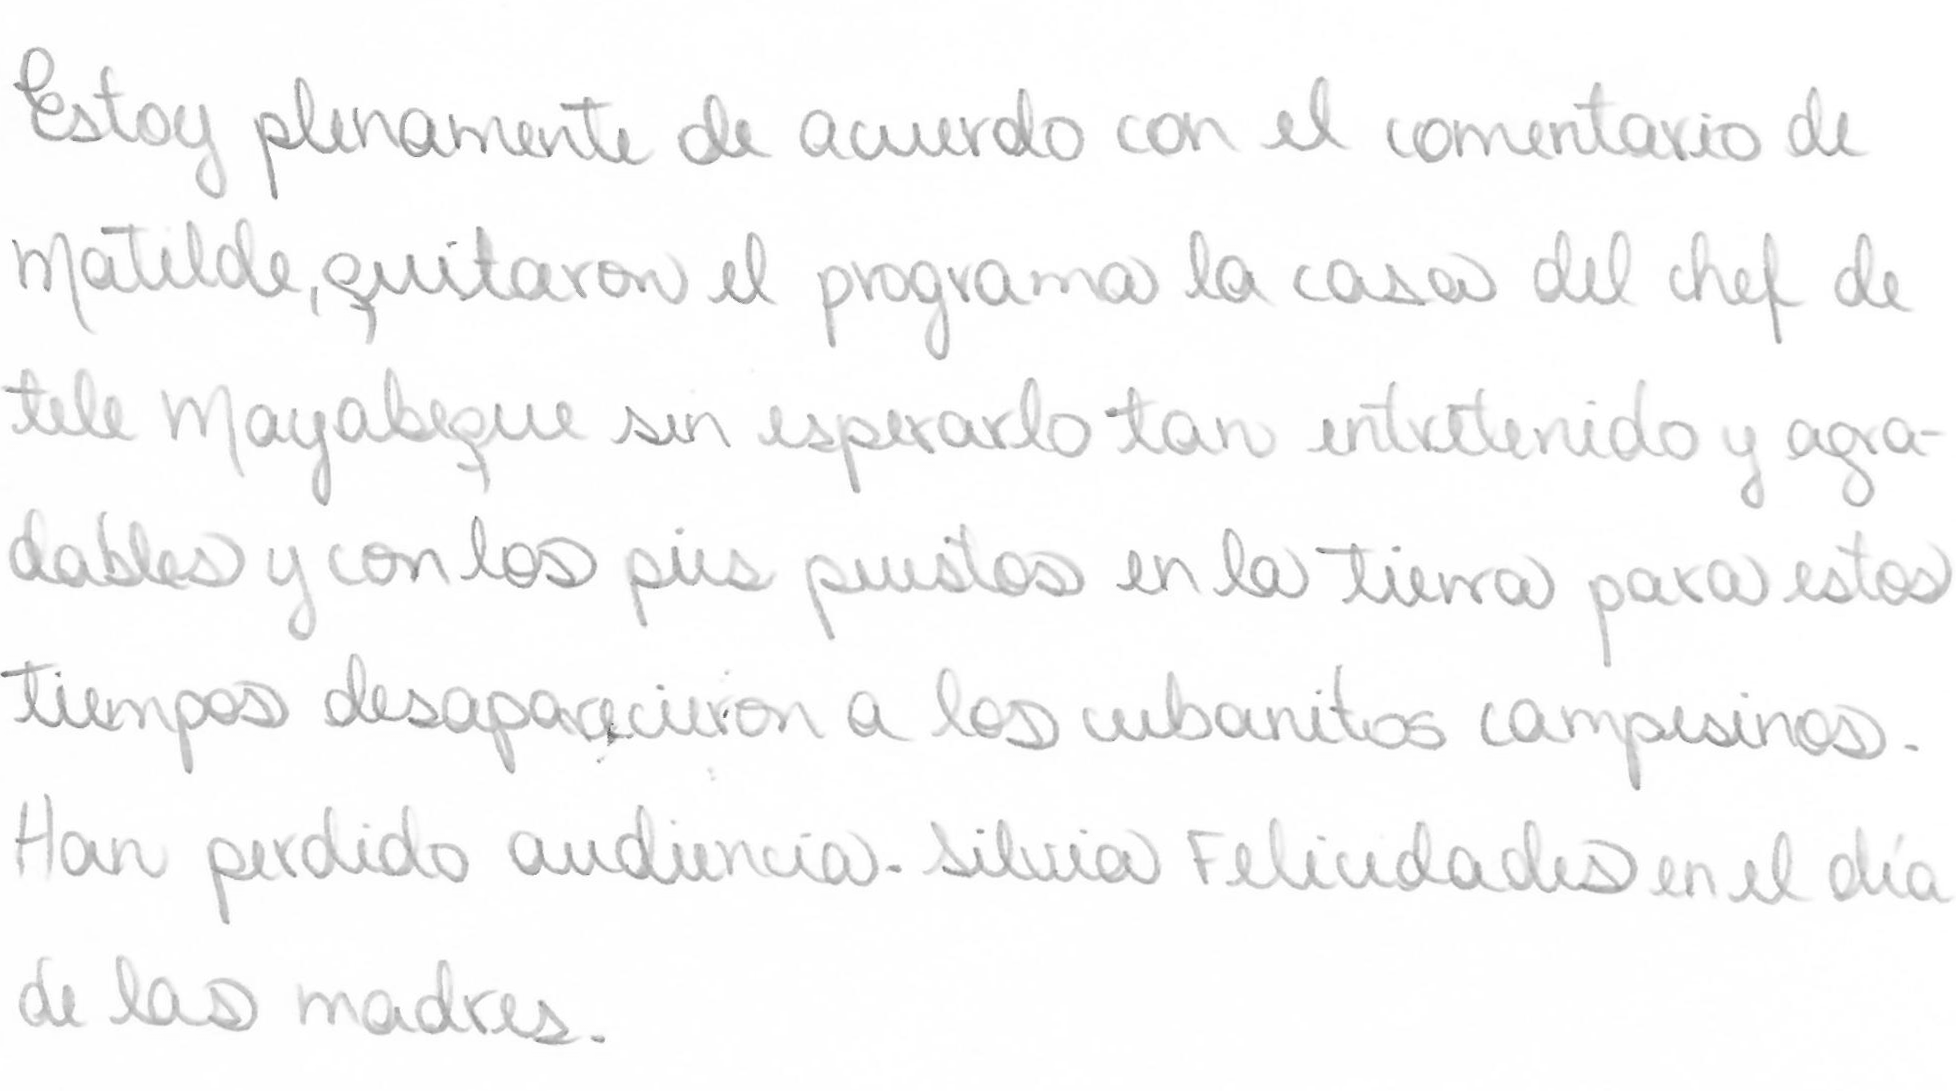 Estoy plenamente de acuerdo con el comentario de
Matilde, quitaron el programa la casa del chef de
tele Mayabeque sin esperarlo tan entretenido y agra-
dables y con los pies puestos en la tierra para estos
tiempos desaparecieron a los cubanitos campesinos.
Han perdido audiencia. Silvia Felicidades en el día
de las madres.